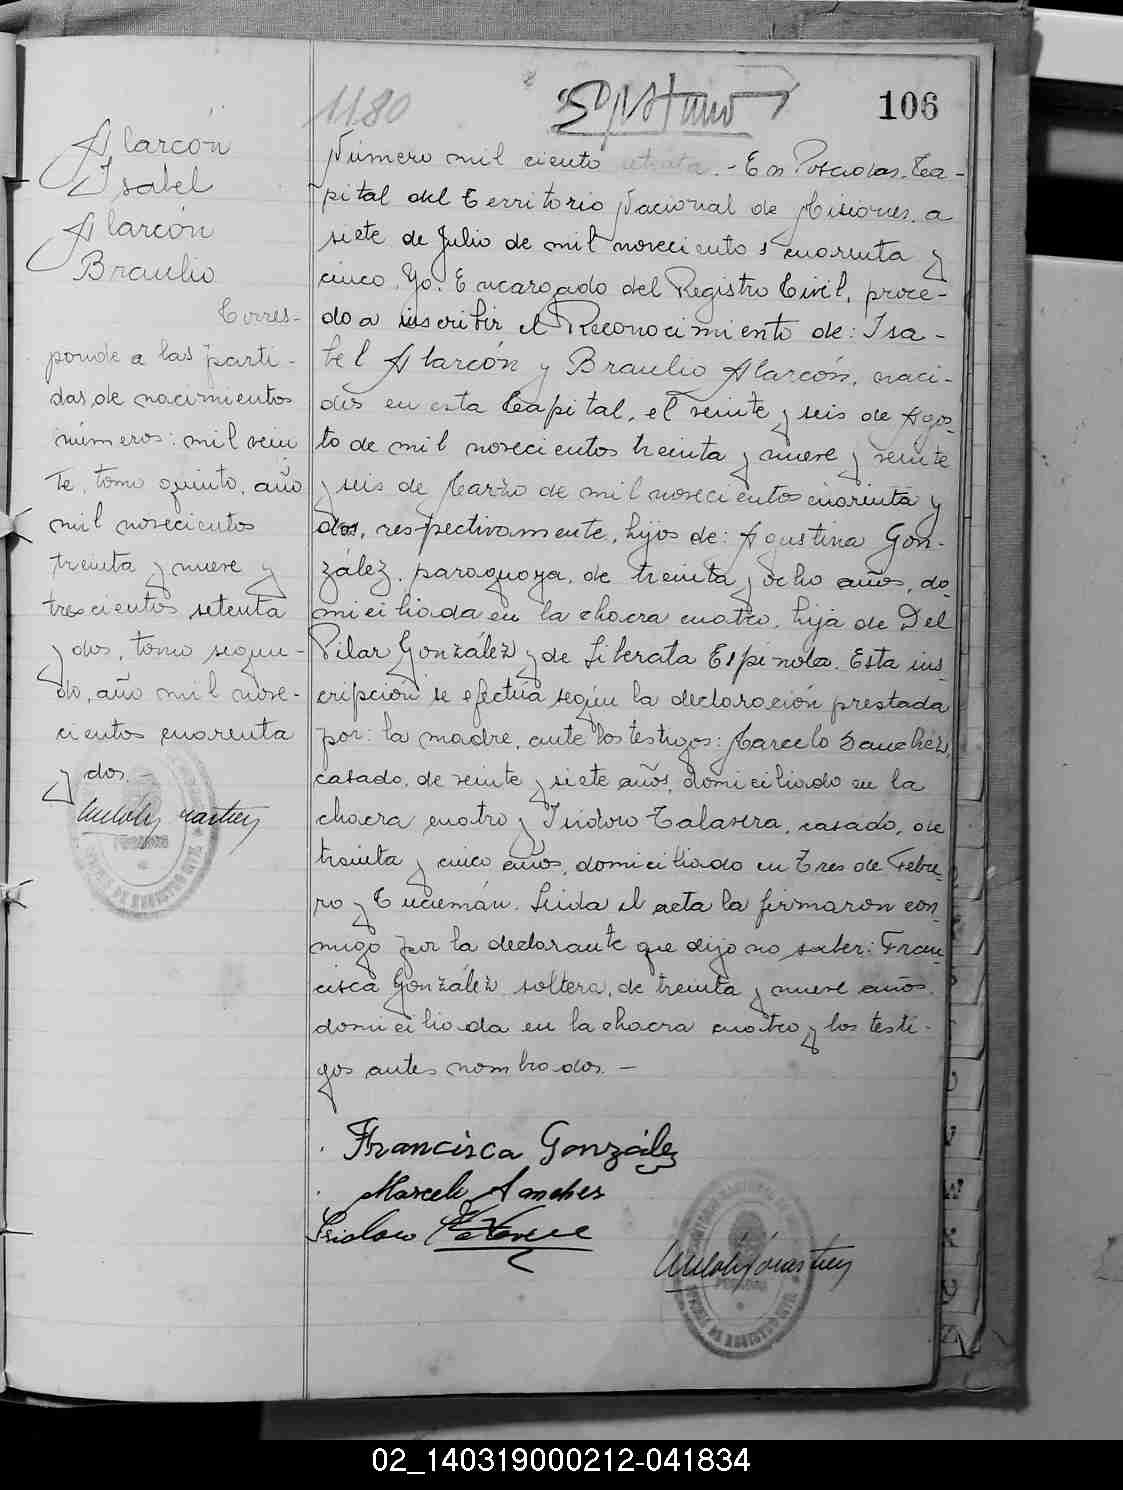 1180
106
Alarcón
Isabel
Alarcón
Braulio
Corres-
ponde a las parti-
das de nacimientos
números: mil vein
te, tomo quinto, año
mil novecientos
treinta y nueve y
trescientos setenta
y dos, tomo segun-
do, año mil nove-
cientos cuarenta
y dos.
Número mil ciento ochenta. - En Posadas, Ca-
pital del Territorio Nacional de Misiones, a
siete de Julio de mil novecientos cuarenta y
cinco. Yo, Encargado del Registro Civil, proce-
do a inscribir el Reconocimiento de: Isa-
bel Alarcón y Braulio Alarcón, naci-
dos en esta Capital, el veinte y seis de Agos-
to de mil novecientos treinta y nueve y veinte
y seis de Marzo de mil novecientos cuarenta y
dos, respectivamente, hijos de: Agustina Gon-
zález, paraguaya, de treinta y ocho años, do-
miciliada en la chacra cuatro, hija de Del
Pilar González y de Liberata Espinola. Esta ins-
cripción se efectúa según la declaración prestada
por: la madre, ante los testigos: Marcelo Sanchéz,
casado, de veinte y siete años, domiciliado en la
chacra cuatro y Isidoro Talavera, casado, de
treinta y cinco años, domiciliado en Tres de Febre-
ro y Tucumán. Leída el acta la firmaron con-
migo por la declarante que dijo no saber: Fran-
cisca González, soltera, de treinta y nueve años,
domiciliada en la chacra cuatro y los testi-
gos antes nombrados. -
Francisca González
Marcelo Sanchez
Isidoro Talavera
02_140319000212-041834